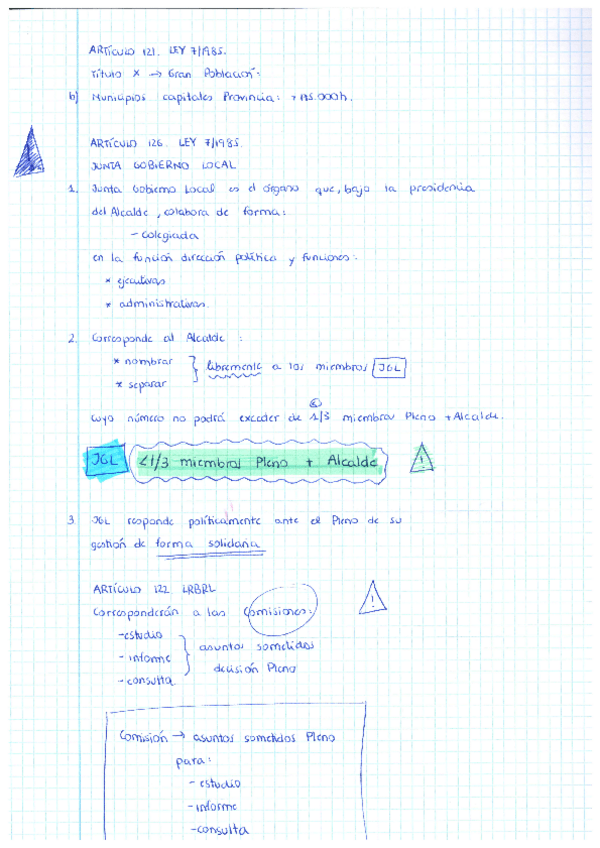 ARTÍCULO 121. LEY 7/1985.
Título X → Gran Población:
b) Municipios capitales Provincia: > 175.000h.
ARTÍCULO 126. LEY 7/1985.
JUNTA GOBIERNO LOCAL
1. Junta Gobierno Local es el órgano que, bajo la presidencia
del Alcalde, colabora de forma:
- colegiada
en la función dirección política y funciones:
* ejecutivas
* administrativas
2. Corresponde al Alcalde :
* nombrar
* separar
libremente a los miembros JGL
cuyo número no podrá exceder de 1/3 miembros Pleno + Alcalde.
JGL <1/3 miembros Pleno + Alcalde !
3. JGL responde políticamente ante el Pleno de su
gestión de forma solidaria
ARTÍCULO 122 LRBRL
Corresponderán a las Comisiones: !
- estudio
- informe
- consulta
asuntos sometidos
decisión Pleno
Comisión → asuntos sometidos Pleno
para:
- estudio
- informe
- consulta